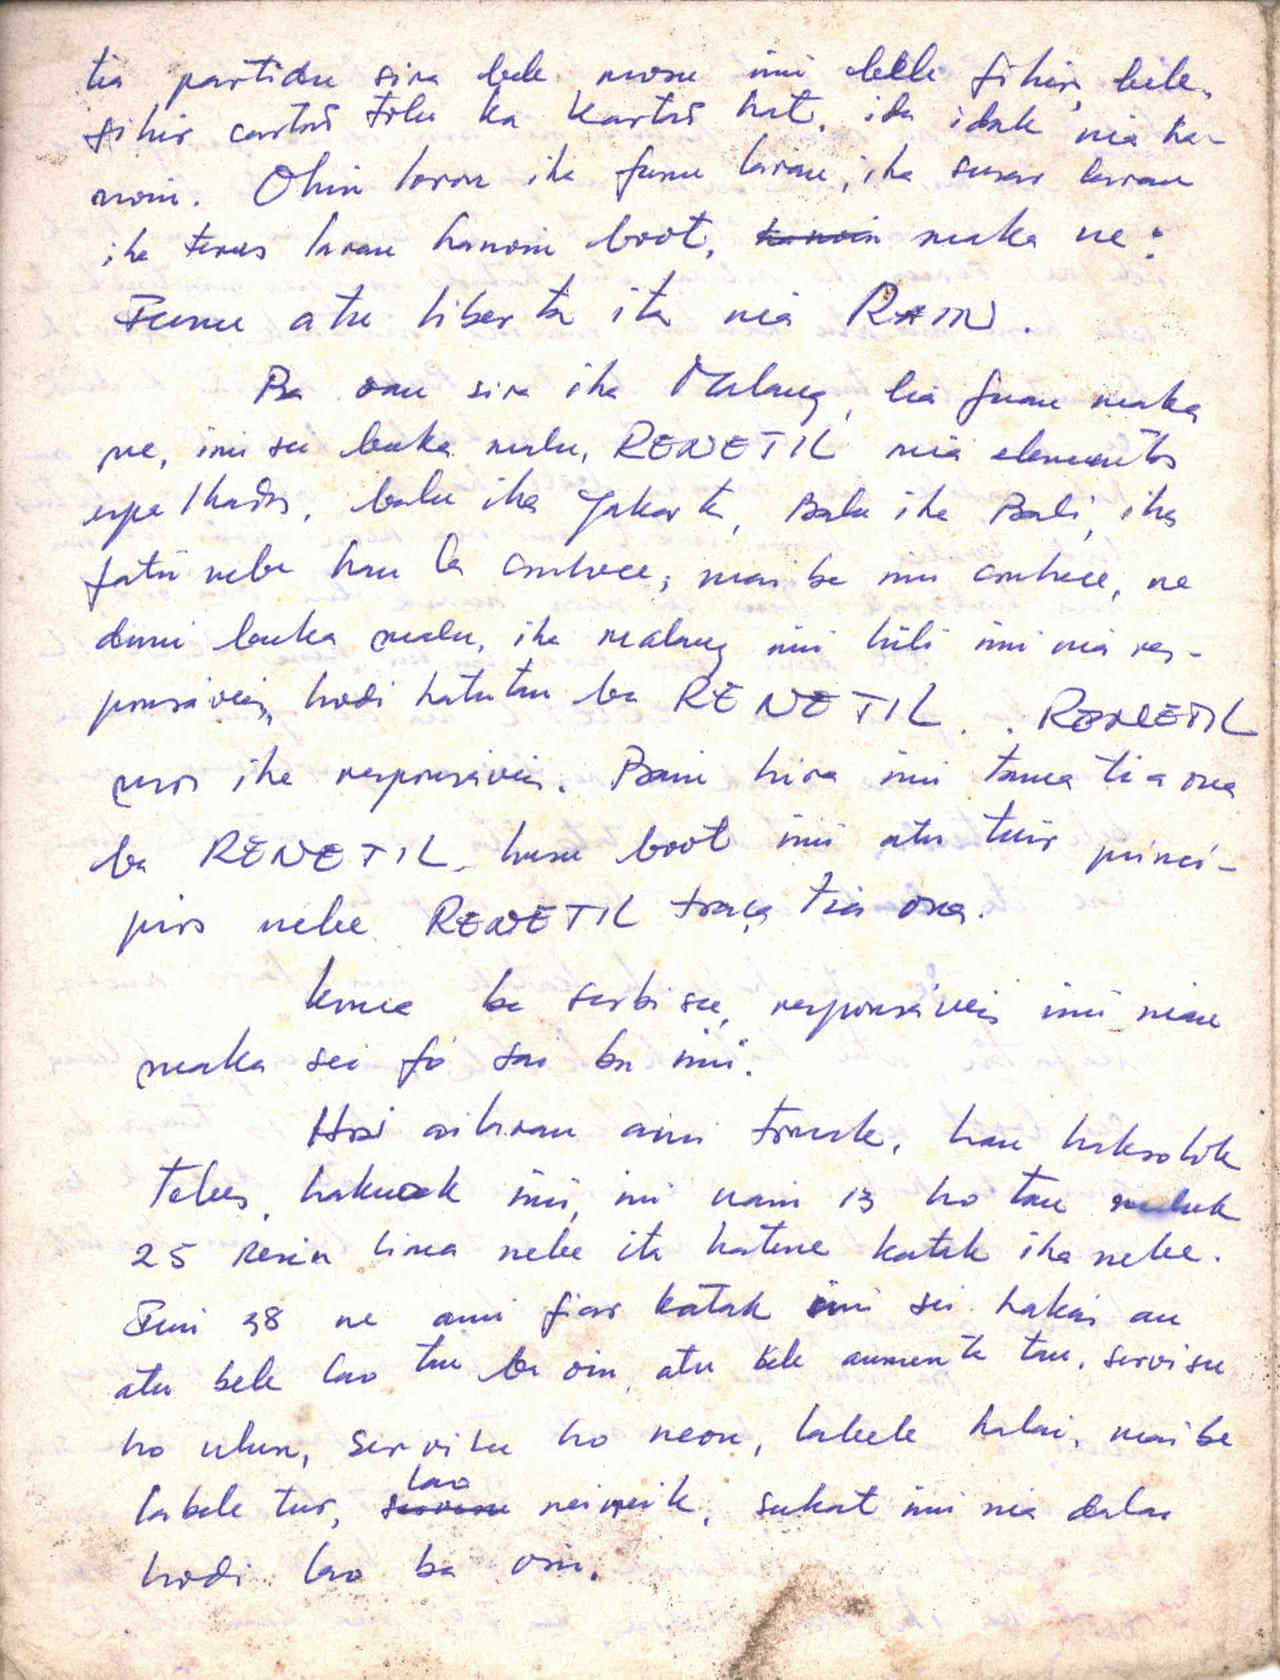 tia partidu sira bele mosu imi bele fihir, bele
fihir cartaõ tolu ka kartaõ hat, ida idak nia ha-
noin. Ohin loron iha funu laran, iha susar laran
iha terus laran hanoin boot, hanoin maka ne:
Funu atu liberta ita nia RAIN.
Ba oan sira iha Malang, lia fuan maka
ne, imi su buka malu, RENETIL nia elementos
espalhados, balu iha Jakarta, Balu iha Bali, iha
fatin nebe hau la conhece, mai be imi conhece, ne
duni buka malu, iha malang imi hili imi nia res-
ponsáveis, hodi hatutan ba RENETIL. RENETIL
mos iha responsáveis. Bain hira imi tama tia ona
ba RENETIL, husu boot imi atu tuir princi-
pios nebe RENETIL traça tia ona.
Kona ba serbisu, responsáveis imi nian
maka sei fó sai ba imi.
Hosi ailaran ami tomak, hau haksolok
tebes, hakuak imi, imi nain 13 ho tau maluk
25 resin lima nebe ita hatene katak iha nebe.
Funi 38 ne ami fiar katak imi sei hakas an
atu bele lao tau ba oin, atu bele aumenta tau, servisu
ho ulun, servisu ho neon, labele halai, mai be
labele tur, servisu lao neineik, sukat imi nia dalan
hodi lao ba oin.